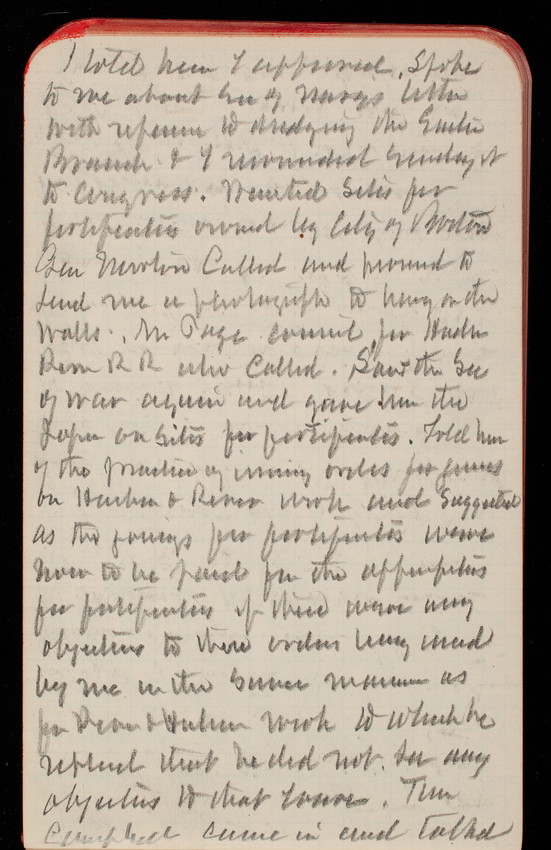 I told him I approved. Spoke
to me about Sec of Navys letter
with reference to dredging the Easter
Branch & I recommended sending it
to Congress. Wanted Sites for
fortification owned by City of Boston
Gen Newton Called and promised to
send me a photograph to hang on the
walls. Mr Page counsel for Hudson
River R R also Called. Saw the Sec
of War again and gave him the
paper on Sites for fortificatis. Told him
of the practice of issuing orders for
on Harbor & River work and Suggested
as the for fortificatis were
now to be paid for the appropriatis
for fortificatis if there were any
objection to these orders being made
by me in the same manner as
for River & Harbor work to which he
replied that he did not see any
objection to that course. Tim
Campbell came in and talked